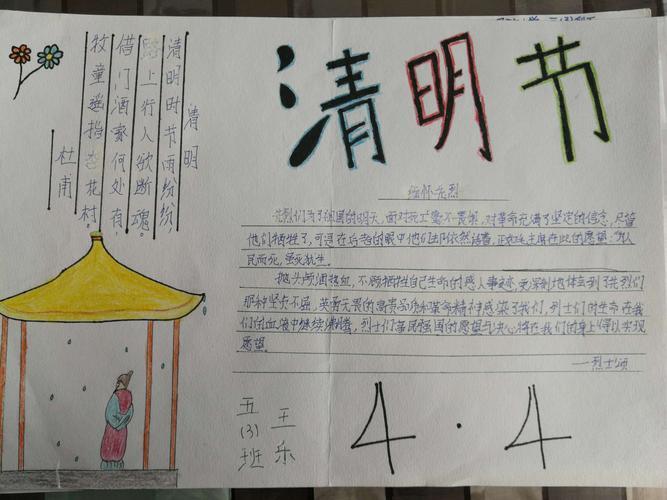 清明节
清明
清明时节雨纷纷,
路上行人欲断魂。
借门酒家何处有,
牧童遥指杏花村。
杜甫
缅怀先烈
先烈们为了祖国的明天,面对死亡毫不畏惧,对革命充满了坚定的信念,尽管
他们牺牲了,可是在后者的眼中他们却依然活着,正如毛主席在此的愿望:为人
民而死,虽死犹生。
抛头颅洒热血,不顾牺牲自己生命的感人事迹,更深刻地体会到了先烈们
那种坚贞不屈,英勇无畏的高贵品质和革命精神感染了我们,烈士们的生命在我
们的血液中继续沸腾,烈士们富民强国的愿望与决心将在我们的身上得以实现
愿望。
——烈士颂
五(3)班
王乐
4·4